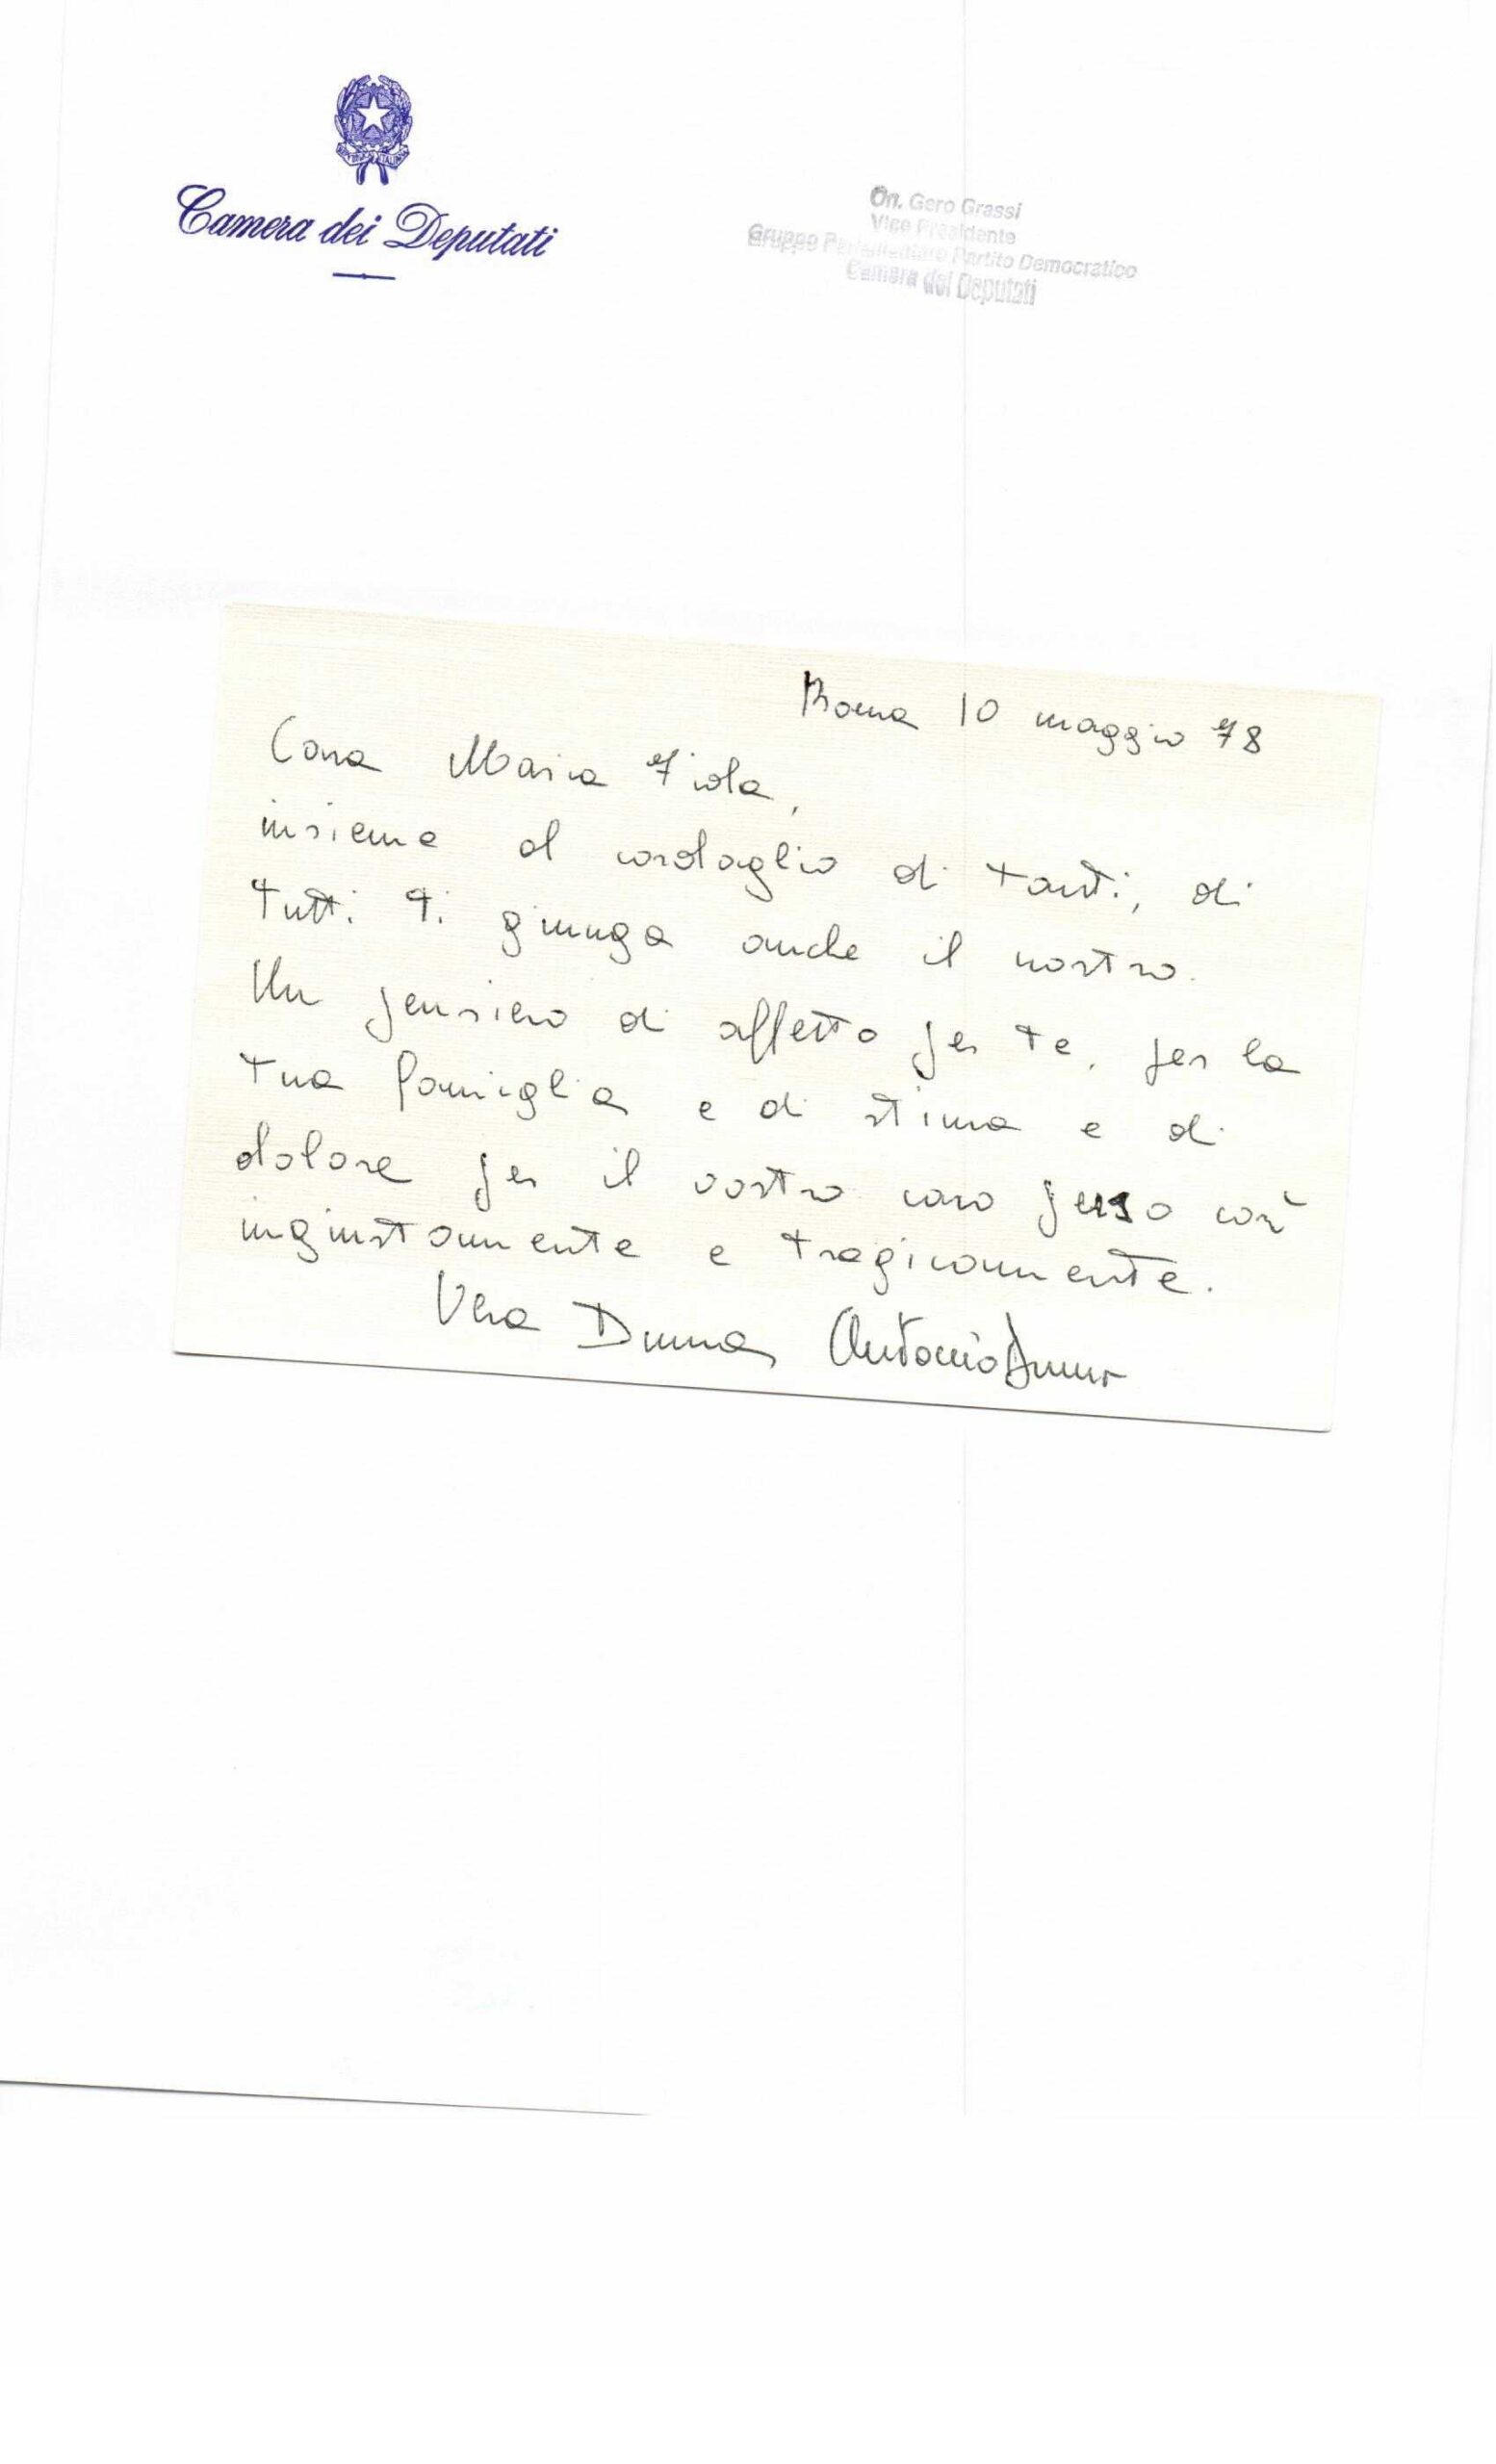 REPUBBLICA ITALIANA
Camera dei Deputati
On. Gero Grassi
Vice Presidente
Gruppo Parlamentare Partito Democratico
Camera dei Deputati
Roma 10 maggio 78
Cara Maria Fida,
insieme al cordoglio di tanti, di
tutti ti giunga anche il nostro.
Un pensiero di affetto per te, per la
tua famiglia e di stima e di
dolore per il vostro caro perso così
ingiustamente e tragicamente.
Vera Antonio